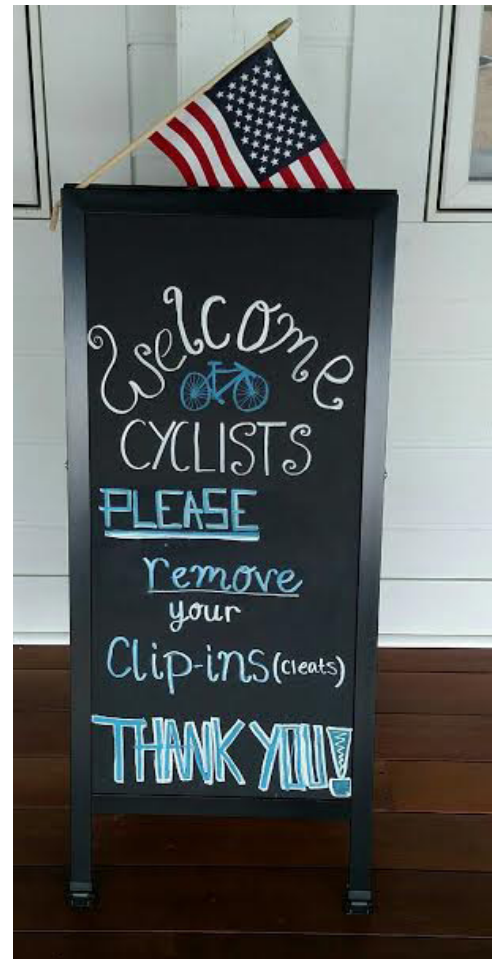 Welcome
CYCLISTS
PLEASE
remove
your
Clip-ins (cleats)
THANK YOU!